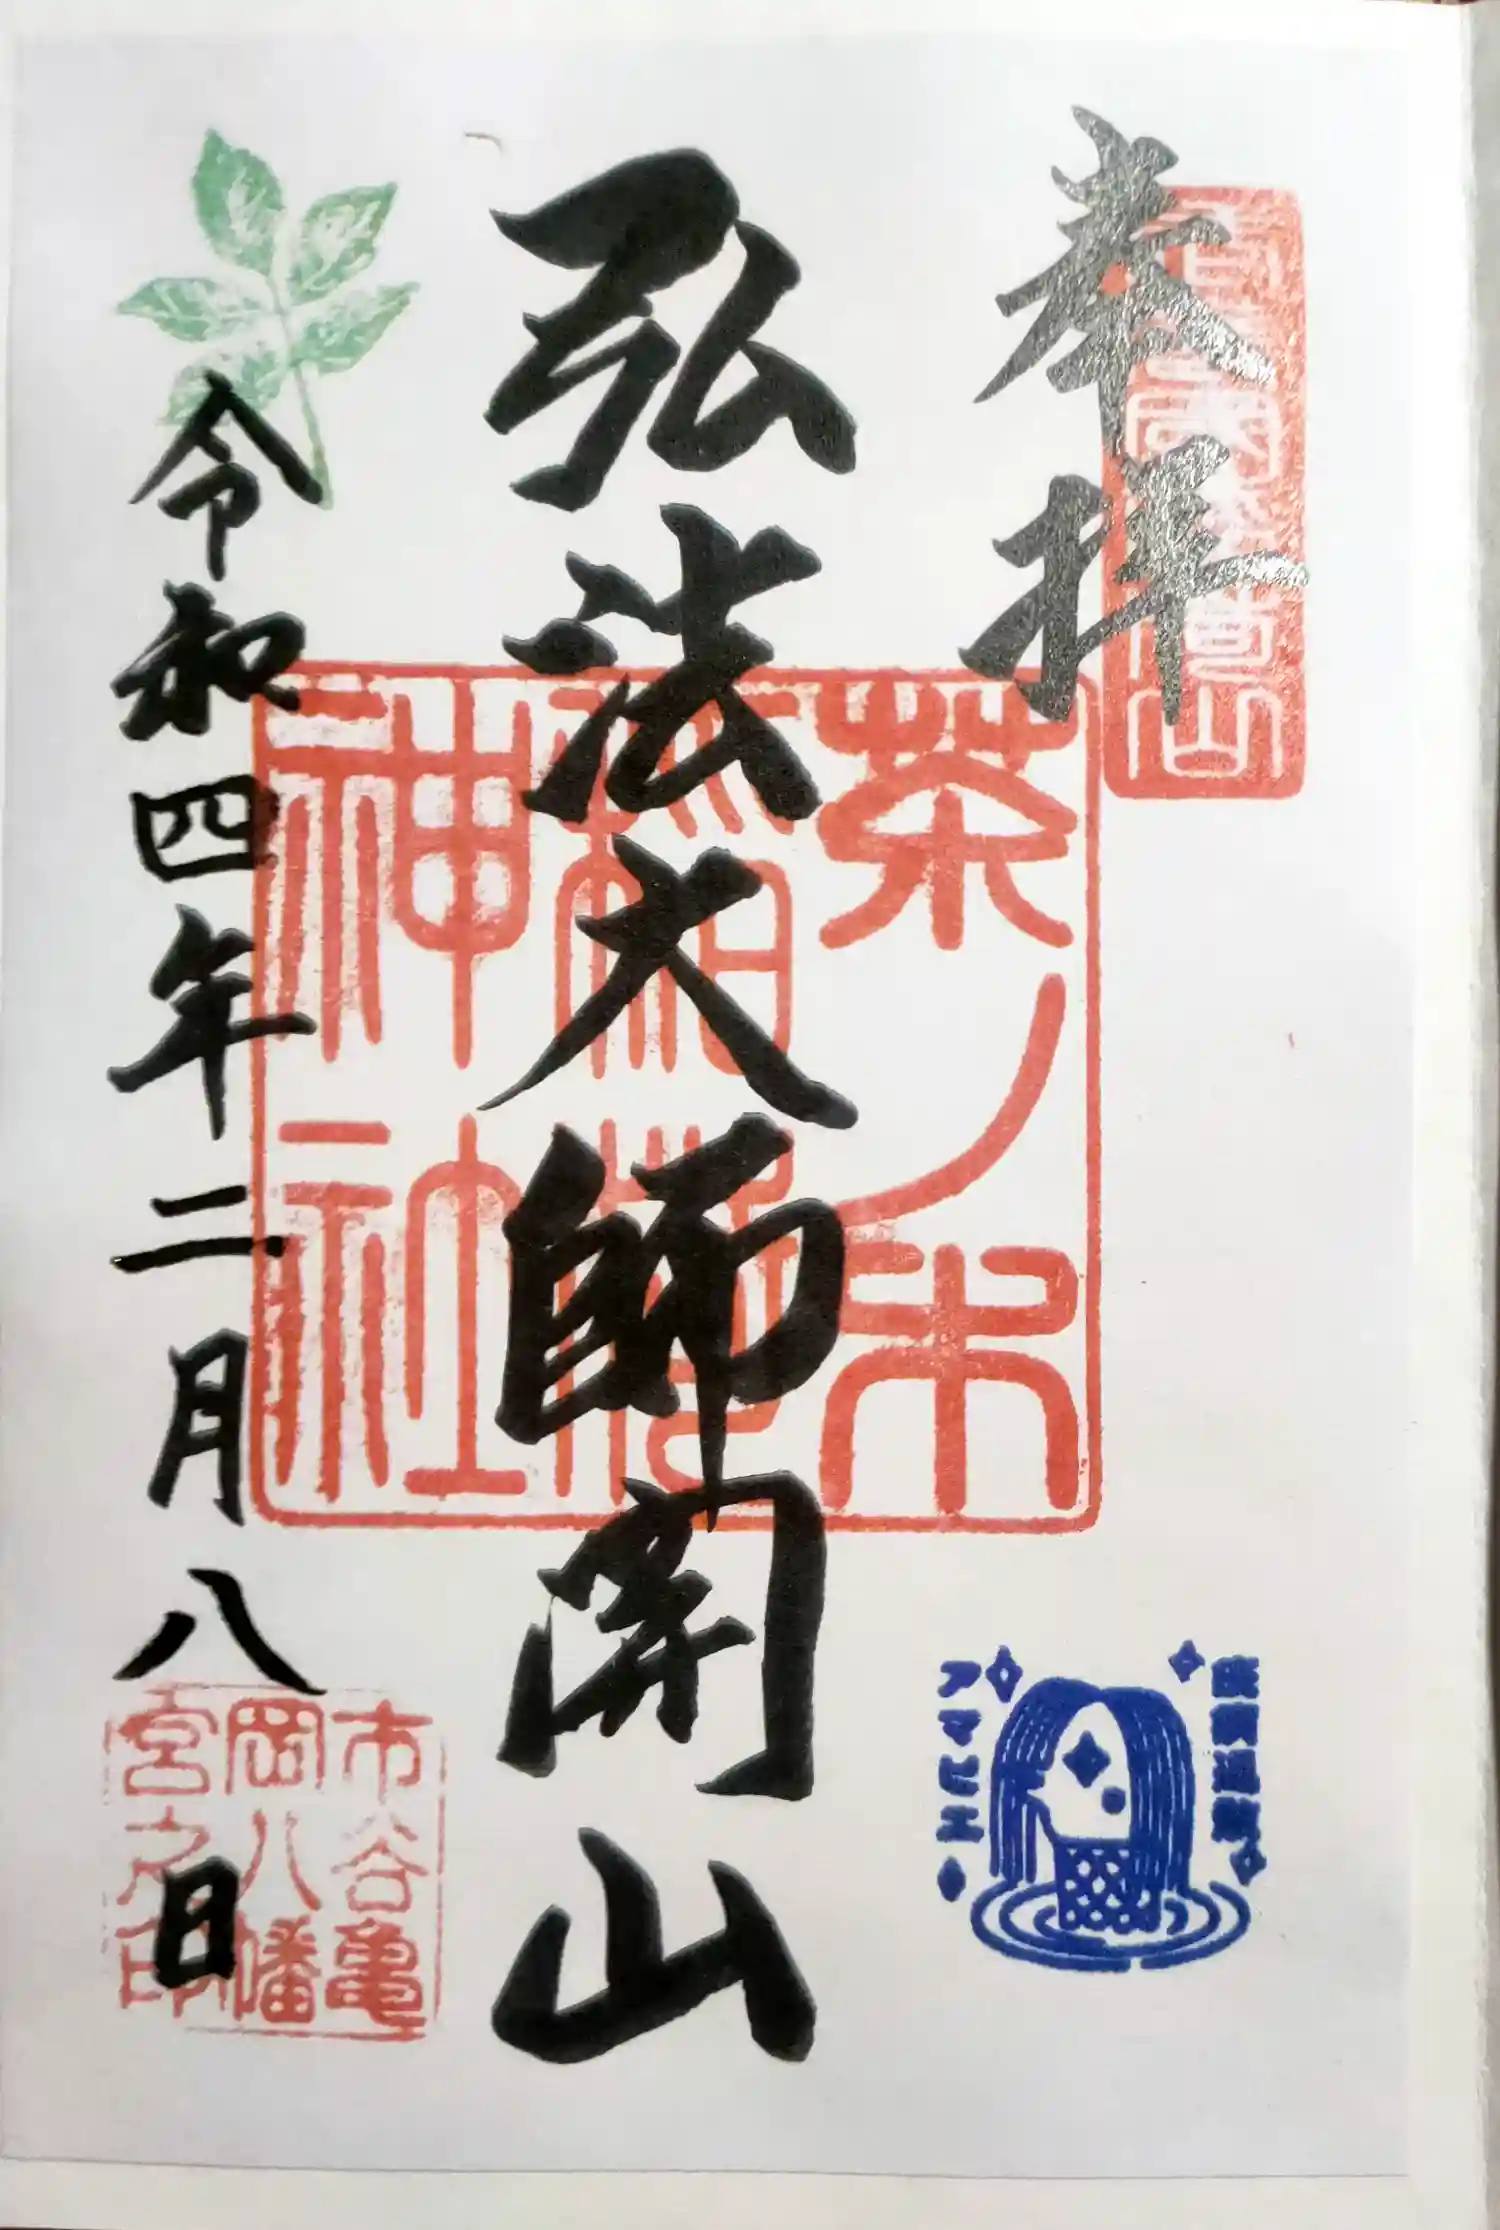 奉拝
弘法大師開山
茶ノ木
稲荷
神社
令和四年二月八日
市谷亀
岡八幡
宮之印
アマビエ